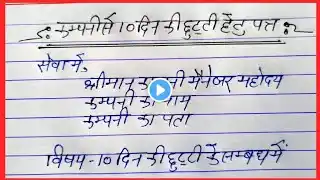 कम्पनी से 10 दिन की छुट्टी हेतु पत्र
सेवा में,
श्रीमान कम्पनी मैनेजर महोदय
कम्पनी का नाम
कम्पनी का पता
विषय-10 दिन की छुट्टी के सम्बन्ध में